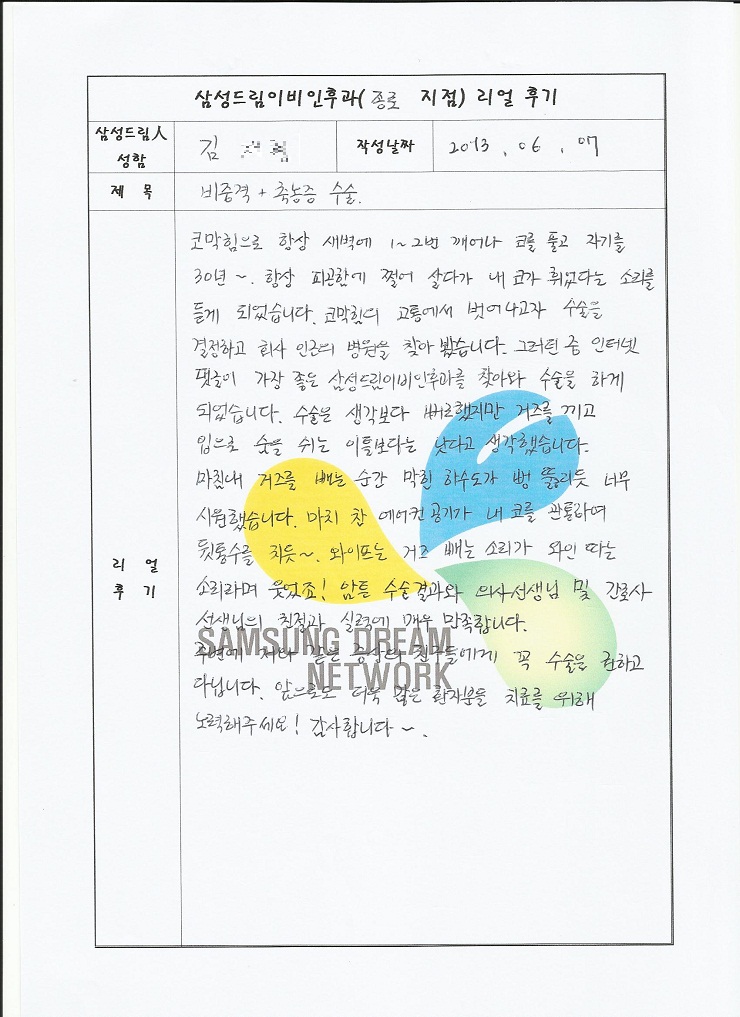 삼성드림이비인후과(종로 지점) 리얼 후기
삼성드림人
성함
김
작성날짜
2013. 06. 07
제 목
비중격 + 축농증 수술.
리 얼
후 기
코막힘으로 항상 새벽에 1~2번 깨어나 코를 풀고 자기를
30년~. 항상 피곤함에 쩔어 살다가 내 코가 휘었다는 소리를
듣게 되었습니다. 코막힘의 고통에서 벗어나고자 수술을
결정하고 회사 인근의 병원을 찾아 봤습니다. 그러던 중 인터넷
댓글이 가장 좋은 삼성드림이비인후과를 찾아와 수술을 하게
되었습니다. 수술은 생각보다 빠르했지만 거즈를 끼고
입으로 숨을 쉬는 이틀보다는 낫다고 생각했습니다.
마침내 거즈를 빼는 순간 막힌 하수도가 뻥 뚫리듯 너무
시원했습니다. 마치 찬 에어컨 공기가 내 코를 관통하여
뒷통수를 치듯~. 와이프는 거즈 빼는 소리가 와인 따는
소리라며 웃었죠! 암튼 수술결과와 의사선생님 및 간호사
선생님의 친절과 실력에 매우 만족합니다.
주변에 저와 같은 증상의 친구들에게 꼭 수술을 권하고
다닙니다. 앞으로도 더욱 많은 환자분들 치료를 위해
노력해주세요! 감사합니다~.
SAMSUNG DREAM
NETWORK